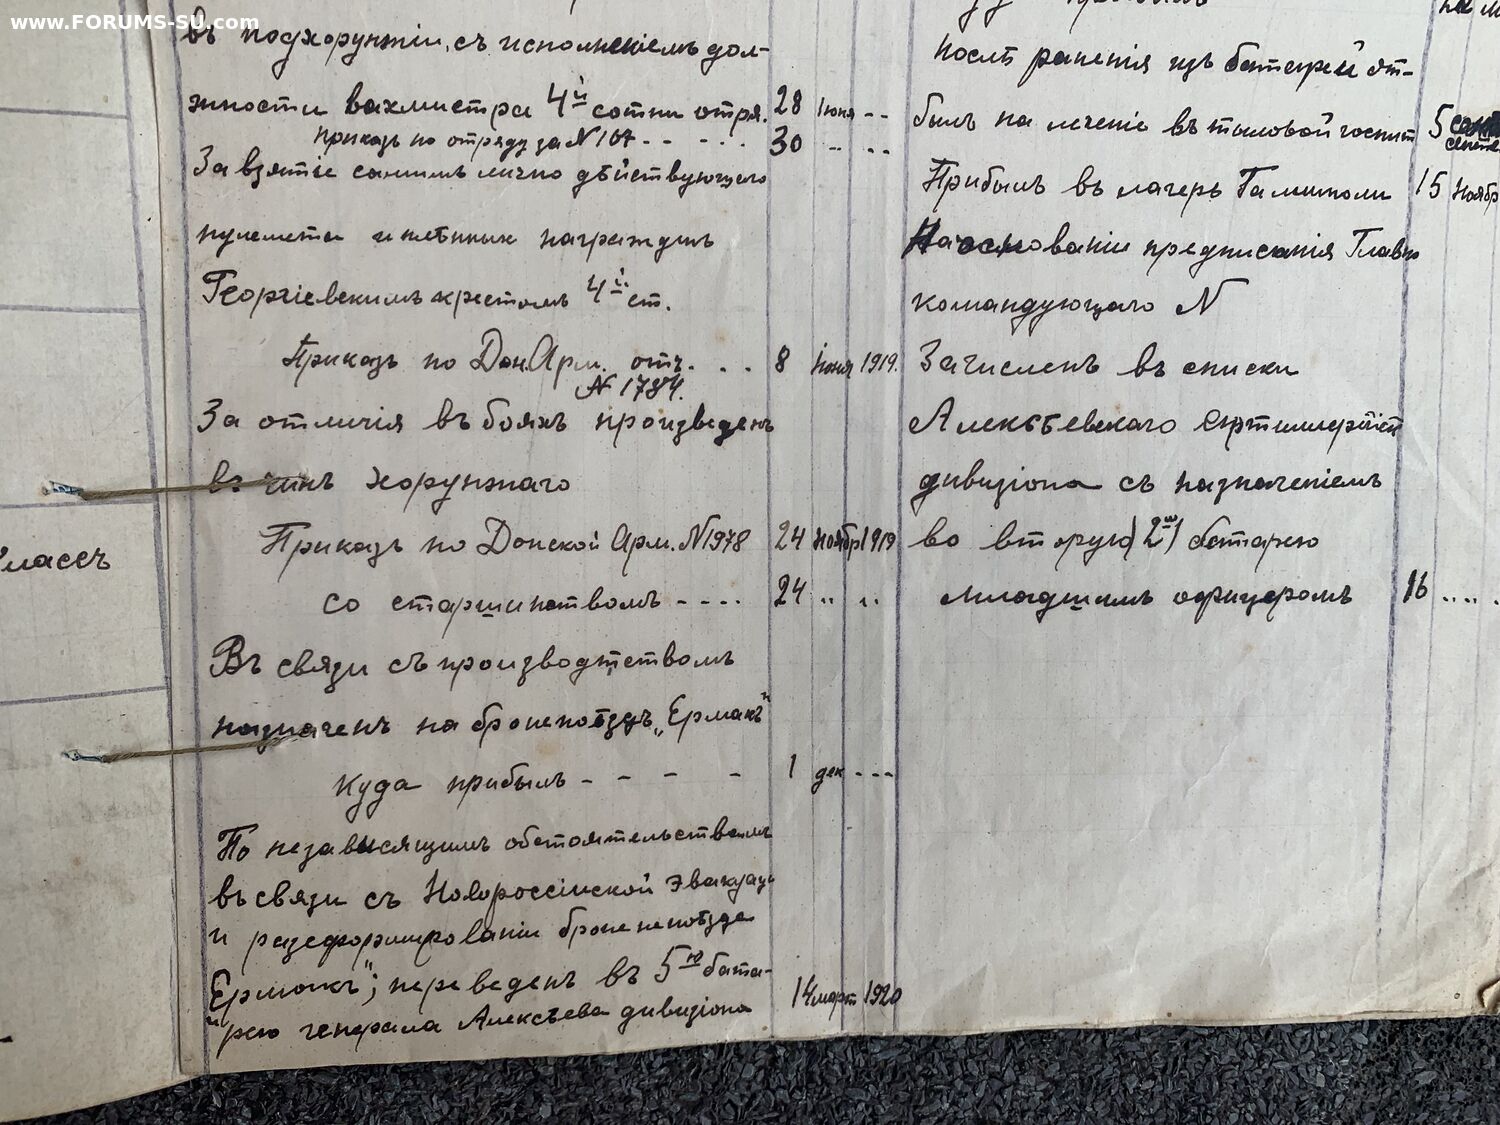 www.FORUMS-SU.com
въ подхорунжіи, съ исполненіемъ дол-
жности вахмистра 4й сотни отря. 28 Іюня --
Приказъ по отряду за № 107 - - - - - 30 - --
За взятіе самимъ лично дѣйствующаго
пулемета и плѣнныхъ награжденъ
Георгіевскимъ крестомъ 4й ст.
Приказъ по Дон. Арм. отъ. . . 8 Іюня 1919.
№ 1784.
За отличія въ бояхъ произведенъ
въ чинъ хорунжаго
Приказъ по Донской Арм. №1978 24 Ноябр 1919
со старшинствомъ - - - - 24 .. ..
Въ связи съ производтствомъ
назначенъ на бронепоѣздъ „Ермакъ"
куда прибылъ - - - - 1 дек - - -
По независящимъ обстоятельствамъ
въ связи съ Новороссійской эвакуац
и разформированіи бронепоѣзда
Ермакъ"; переведенъ въ 5ю бата-
рею генерала Алексѣева дивизіона 14 март 1920
классъ
послѣ раненія изъ батареи от-
былъ на леченіе въ тыловой госпит 5
Прибылъ въ лагерь Галиполи 15 Ноябр
На основаніи предписанія Главно
командующаго N
Зачисленъ въ списки
Алексѣевскаго Артиллерійск
дивизіона съ назначеніемъ
во вторую (2ю) батарею
младшимъ офицеромъ 16 .... .